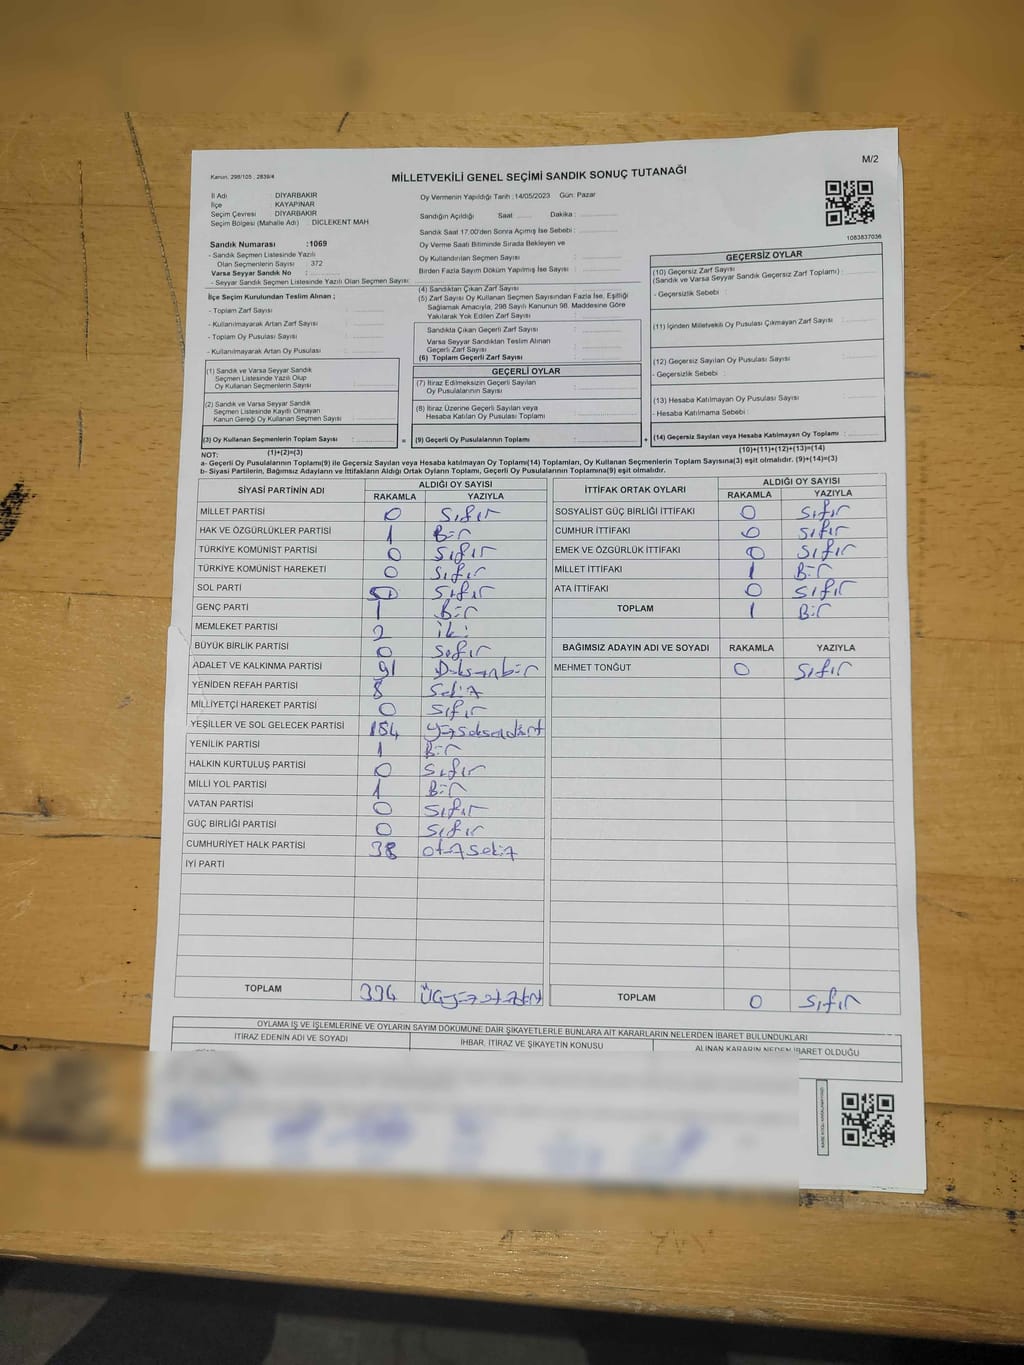 M/2
Kanun. 298/105 , 2839/4
MİLLETVEKİLİ GENEL SEÇİMİ SANDIK SONUÇ TUTANAĞI
İl Adı DİYARBAKIR
İlçe KAYAPINAR
Seçim Çevresi DİYARBAKIR
Seçim Bölgesi (Mahalle Adı) : DICLEKENT MAH
Sandık Numarası :1069
- Sandık Seçmen Listesinde Yazılı
Olan Seçmenlerin Sayısı : 372
Varsa Seyyar Sandık No :
- Seyyar Sandık Seçmen Listesinde Yazılı Olan Seçmen Sayısı:
Oy Vermenin Yapıldığı Tarih :14/05/2023 Gün: Pazar
Sandığın Açıldığı Saat Dakika :
Sandık Saat 17.00'den Sonra Açımış İse Sebebi :
Oy Verme Saati Bitiminde Sırada Bekleyen ve
Oy Kullandırılan Seçmen Sayısı :
Birden Fazla Sayım Döküm Yapılmış İse Sayısı :
1083837036
İlçe Seçim Kurulundan Teslim Alınan ;
- Toplam Zarf Sayısı :
- Kullanılmayarak Artan Zarf Sayısı :
- Toplam Oy Pusulası Sayısı :
- Kullanılmayarak Artan Oy Pusulası :
(1) Sandık ve Varsa Seyyar Sandık
Seçmen Listesinde Yazılı Olup
Oy Kullanan Seçmenlerin Sayısı :
(2) Sandık ve Varsa Seyyar Sandık
Seçmen Listesinde Kayıtlı Olmayan
Kanun Gereği Oy Kullanan Seçmen Sayısı :
(3) Oy Kullanan Seçmenlerin Toplam Sayısı : =
(1)+(2)=(3)
(4) Sandıktan Çıkan Zarf Sayısı :
(5) Zarf Sayısı Oy Kullanan Seçmen Sayısından Fazla İse, Eşitliği
Sağlamak Amacıyla, 298 Sayılı Kanunun 98. Maddesine Göre
Yakılarak Yok Edilen Zarf Sayısı :
Sandıkla Çıkan Geçerli Zarf Sayısı :
Varsa Seyyar Sandıktan Teslim Alınan
Geçerli Zarf Sayısı :
(6) Toplam Geçerli Zarf Sayısı :
GEÇERLİ OYLAR
(7) İtiraz Edilmeksizin Geçerli Sayılan
Oy Pusulalarının Sayısı :
(8) İtiraz Üzerine Geçerli Sayılan veya
Hesaba Katılan Oy Pusulası Toplamı :
(9) Geçerli Oy Pusulalarının Toplamı : +
GEÇERSİZ OYLAR
(10) Geçersiz Zarf Sayısı
(Sandık ve Varsa Seyyar Sandık Geçersiz Zarf Toplamı) :
- Geçersizlik Sebebi :
(11) İçinden Milletvekili Oy Pusulası Çıkmayan Zarf Sayısı :
(12) Geçersiz Sayılan Oy Pusulası Sayısı :
- Geçersizlik Sebebi :
(13) Hesaba Katılmayan Oy Pusulası Sayısı :
- Hesaba Katılmama Sebebi :
(14) Geçersiz Sayılan veya Hesaba Katılmayan Oy Toplamı :
(10)+(11)+(12)+(13)=(14)
NOT:
a- Geçerli Oy Pusulalarının Toplamı(9) ile Geçersiz Sayılan veya Hesaba katılmayan Oy Toplamı(14) Toplamları, Oy Kullanan Seçmenlerin Toplam Sayısına(3) eşit olmalıdır. (9)+(14)=(3)
b- Siyasi Partilerin, Bağımsız Adayların ve İttifakların Aldığı Ortak Oyların Toplamı, Geçerli Oy Pusulalarının Toplamına(9) eşit olmalıdır.
SİYASİ PARTİNİN ADI ALDIĞI OY SAYISI
RAKAMLA YAZIYLA
MİLLET PARTİSİ 0 Sıfır
HAK VE ÖZGÜRLÜKLER PARTİSİ 1 Bir
TÜRKİYE KOMÜNİST PARTİSİ 0 Sıfır
TÜRKİYE KOMÜNİST HAREKETİ 0 Sıfır
SOL PARTİ 0 Sıfır
GENÇ PARTİ 1 Bir
MEMLEKET PARTİSİ 2 iki
BÜYÜK BİRLİK PARTİSİ 0 Sıfır
ADALET VE KALKINMA PARTİSİ 91 Doksanbir
YENİDEN REFAH PARTİSİ 8 Sekiz
MİLLİYETÇİ HAREKET PARTİSİ 0 Sıfır
YEŞİLLER VE SOL GELECEK PARTİSİ 184 yüzseksendört
YENİLİK PARTİSİ 1 Bir
HALKIN KURTULUŞ PARTİSİ 0 Sıfır
MİLLİ YOL PARTİSİ 1 Bir
VATAN PARTİSİ 0 Sıfır
GÜÇ BİRLİĞİ PARTİSİ 0 Sıfır
CUMHURİYET HALK PARTİSİ 38 otuzsekiz
İYİ PARTİ
TOPLAM 334 Üçyüzotuzdört
İTTİFAK ORTAK OYLARI ALDIĞI OY SAYISI
RAKAMLA YAZIYLA
SOSYALİST GÜÇ BİRLİĞİ İTTİFAKI 0 Sıfır
CUMHUR İTTİFAKI 0 Sıfır
EMEK VE ÖZGÜRLÜK İTTİFAKI 0 Sıfır
MİLLET İTTİFAKI 1 Bir
ATA İTTİFAKI 0 Sıfır
TOPLAM 1 Bir
BAĞIMSIZ ADAYIN ADI VE SOYADI RAKAMLA YAZIYLA
MEHMET TONĞUT 0 Sıfır
TOPLAM 0 Sıfır
OYLAMA İŞ VE İŞLEMLERİNE VE OYLARIN SAYIM DÖKÜMÜNE DAİR ŞİKAYETLERLE BUNLARA AİT KARARLARIN NELERDEN İBARET BULUNDUKLARI
İTİRAZ EDENİN ADI VE SOYADI İHBAR, İTİRAZ VE ŞİKAYETİN KONUSU ALINAN KARARIN NEDEN İBARET OLDUĞU